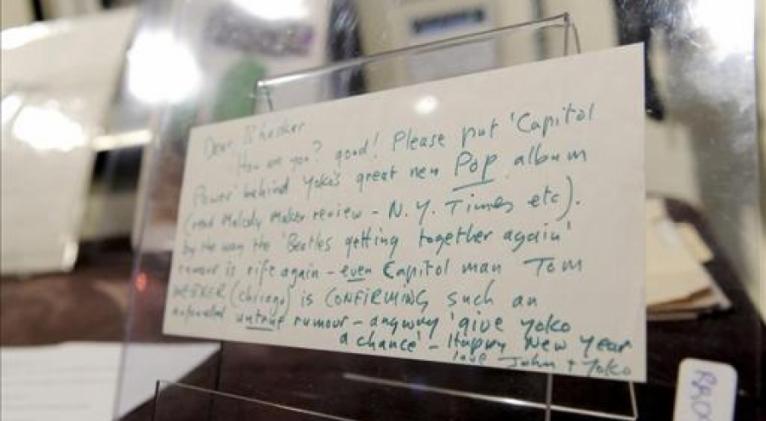 Dear
How are you? good! Please put 'Capitol
Power' behind Yoko's great new Pop album
(read Melody Maker review - N.Y. Times etc).
by the way the 'Beatles getting together again'
rumour is rife again - even Capitol man Tom
(chicago) is CONFIRMING such an
untrue rumour - anyway 'give Yoko
a chance' - Happy New Year
love John + Yoko